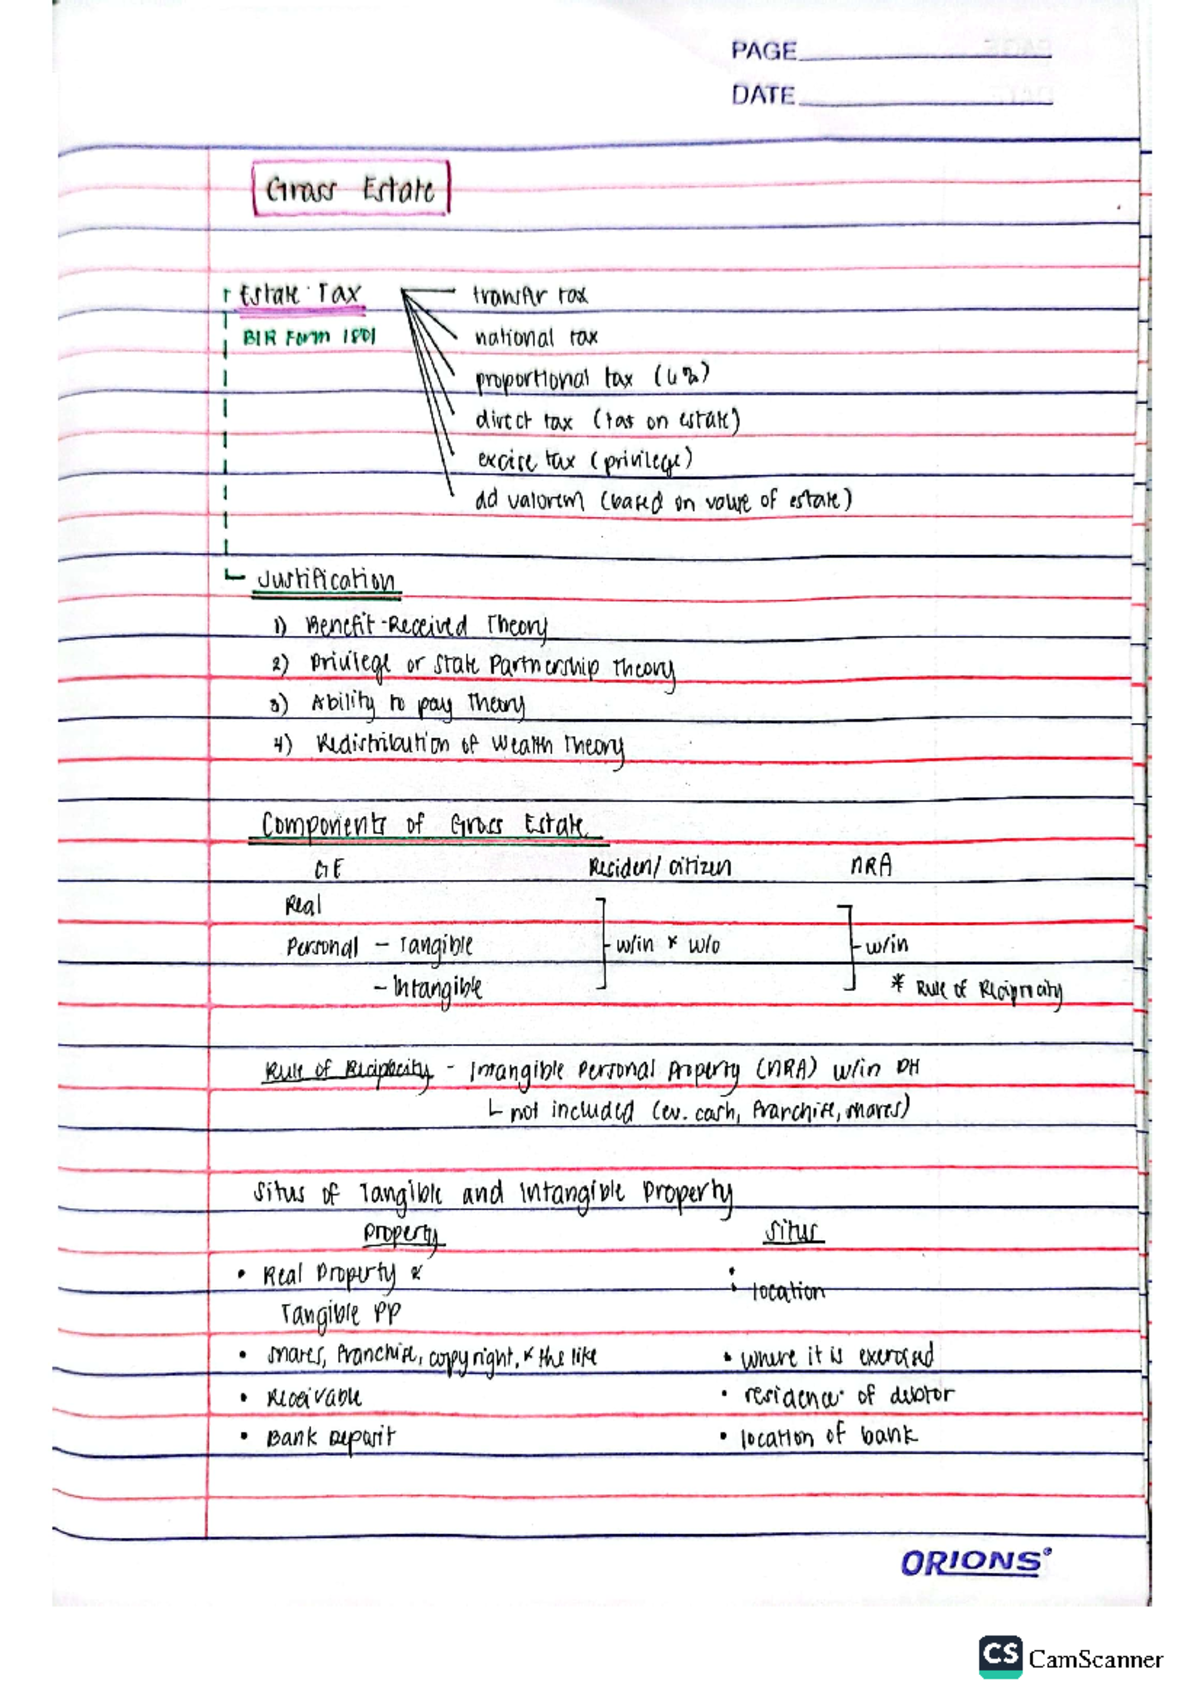 PAGE
DATE
Gross Estate
Estate Tax
transfer tax
BIR Form 1801
national tax
proportional tax (6%)
direct tax (tax on estate)
excise tax (privilege)
ad valorem (based on value of estate)
Justification
1) Benefit-Received Theory
2) Privilege or State Partnership Theory
3) Ability to pay Theory
4) Redistribution of Wealth Theory
Components of Gross Estate
GE Residen/ citizen NRA
Real
Personal - Tangible w/in & w/o w/in
- Intangible * Rule of Reciprocity
Rule of Reciprocity - Intangible Personal Property (NRA) w/in PH
not included (ex. cash, franchise, shares)
Situs of Tangible and Intangible Property
Property Situs
• Real Property &
• location
Tangible PP
• shares, franchise, copyright, & the like • where it is exercised
• Receivable • residence of debtor
• Bank Deposit • location of bank
ORIONS
CS CamScanner